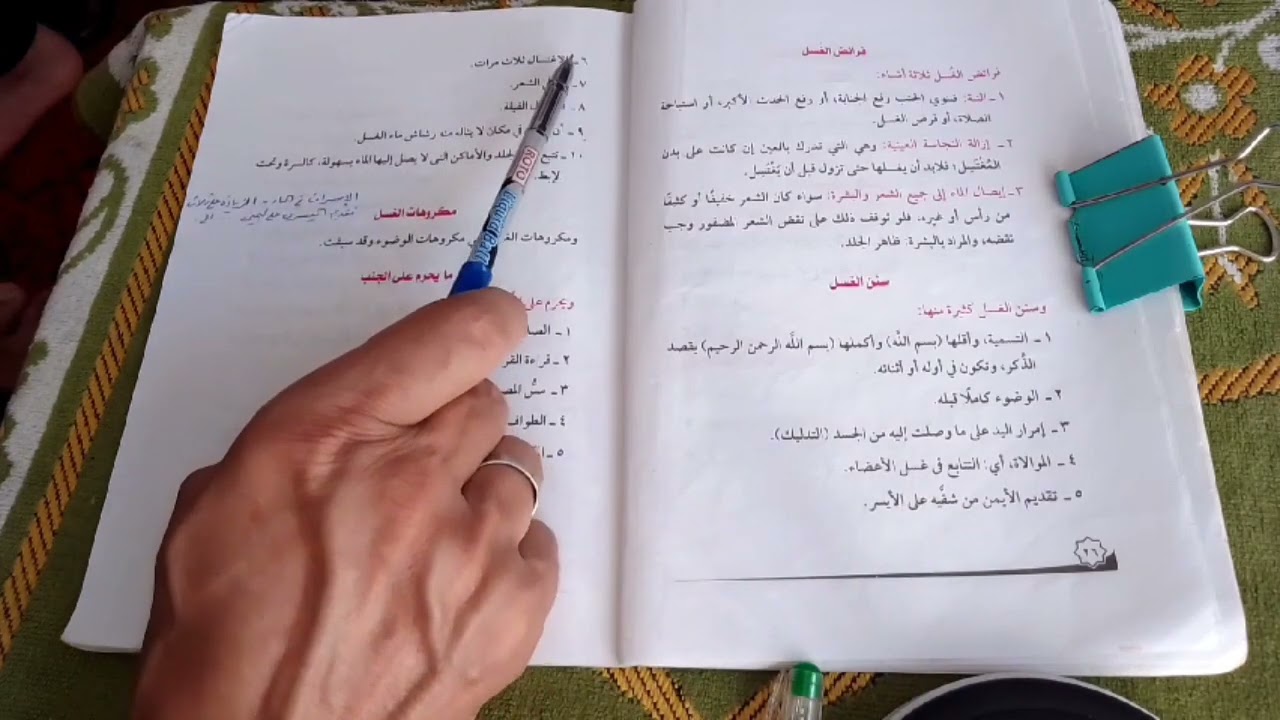 فرائض الغسل
فرائض الغُسل ثلاثة أشياء:
١ - النية: فينوي الجنب رفع الجنابة، أو رفع الحدث الأكبر، أو استباحة
الصلاة، أو فرض الغسل.
٢ - إزالة النجاسة العينية: وهي التي تدرك بالعين إن كانت على بدن
المُغْتَسِل؛ فلابد أن يغسلها حتى تزول قبل أن يَغْتَسِل.
٣ - إيصال الماء إلى جميع الشعر والبشرة: سواء كان الشعر خفيفًا أو كثيفًا
من رأس أو غيره، فلو توقف ذلك على نقض الشعر المضفور وجب
نقضه، والمراد بالبشرة: ظاهر الجلد.
سنن الغسل
وسنن الغسل كثيرة منها:
١ - التسمية، وأقلها (بسم اللَّه) وأكملها (بسم اللَّه الرحمن الرحيم) بقصد
الذُّكر، وتكون في أوله أو أثنائه.
٢ - الوضوء كاملًا قبله.
٣ - إمرار اليد على ما وصلت إليه من الجسد (التدليك).
٤ - الموالاة، أي: التتابع في غسل الأعضاء.
٥ - تقديم الأيمن من شقَّيه على الأيسر.
٢٦
٦ - الاغتسال ثلاث مرات.
٧ - الشعر.
٨ - القبلة.
٩ - أن في مكان لا يناله منه رشاش ماء الغسل.
١٠ - تتبع الجلد والأماكن التى لا يصل إليها الماء بسهولة، كالسرة وتحت
لإبط.
الإسراف في الماء - الزيادة
مكروهات الغسل
تقديم اليسرى على اليمين
ومكروهات مكروهات الوضوء وقد سبقت.
ما يحرم على الجنب
ويحرم على
١ -
٢ - قراءة
٣ - مسُّ
٤ - الطواف
٥ -